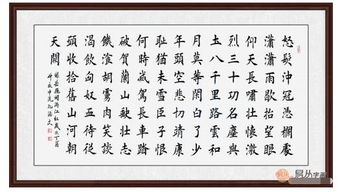 怒髮沖冠憑欄處
瀟瀟雨歇抬望眼
仰天長嘯壯懷激
烈三十功名塵與
土八千里路雲和
月莫等閒白了少
年頭空悲切靖康
恥猶未雪臣子恨
何時滅駕長車踏
破賀蘭山缺壯志
饑餐胡虜肉笑談
渴飲匈奴血待從
頭收拾舊山河朝
天闕
錄岳飛詞滿江紅歲次丁酉
易从字画